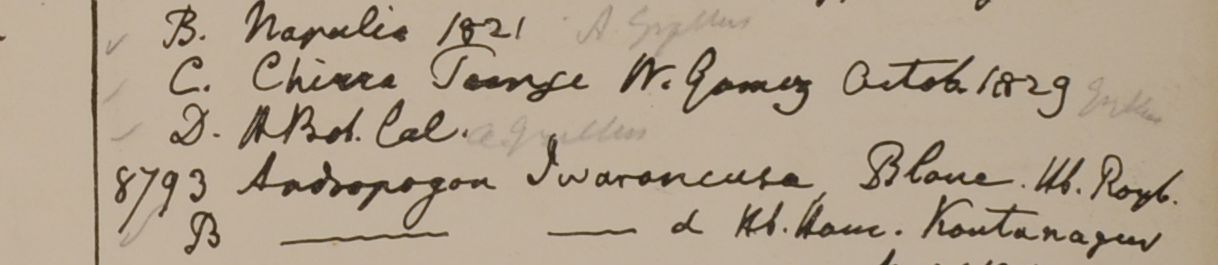 B. Napalia 1821 A. Gryllus
C. Chirra Toonge W. Gomez Octob. 1829 Gryllus
D. HBot. Cal. A Gryllus
8793 Andropogon Iwarancusa, Blane. Hb. Roxb.
B — — d Hb. Ham. Kontanagur